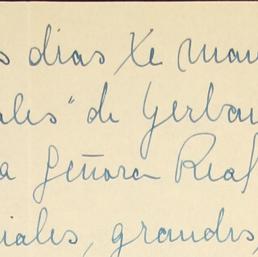 s dias Xe man
ales" de Yerba
a Señora Real
iales, grandes,